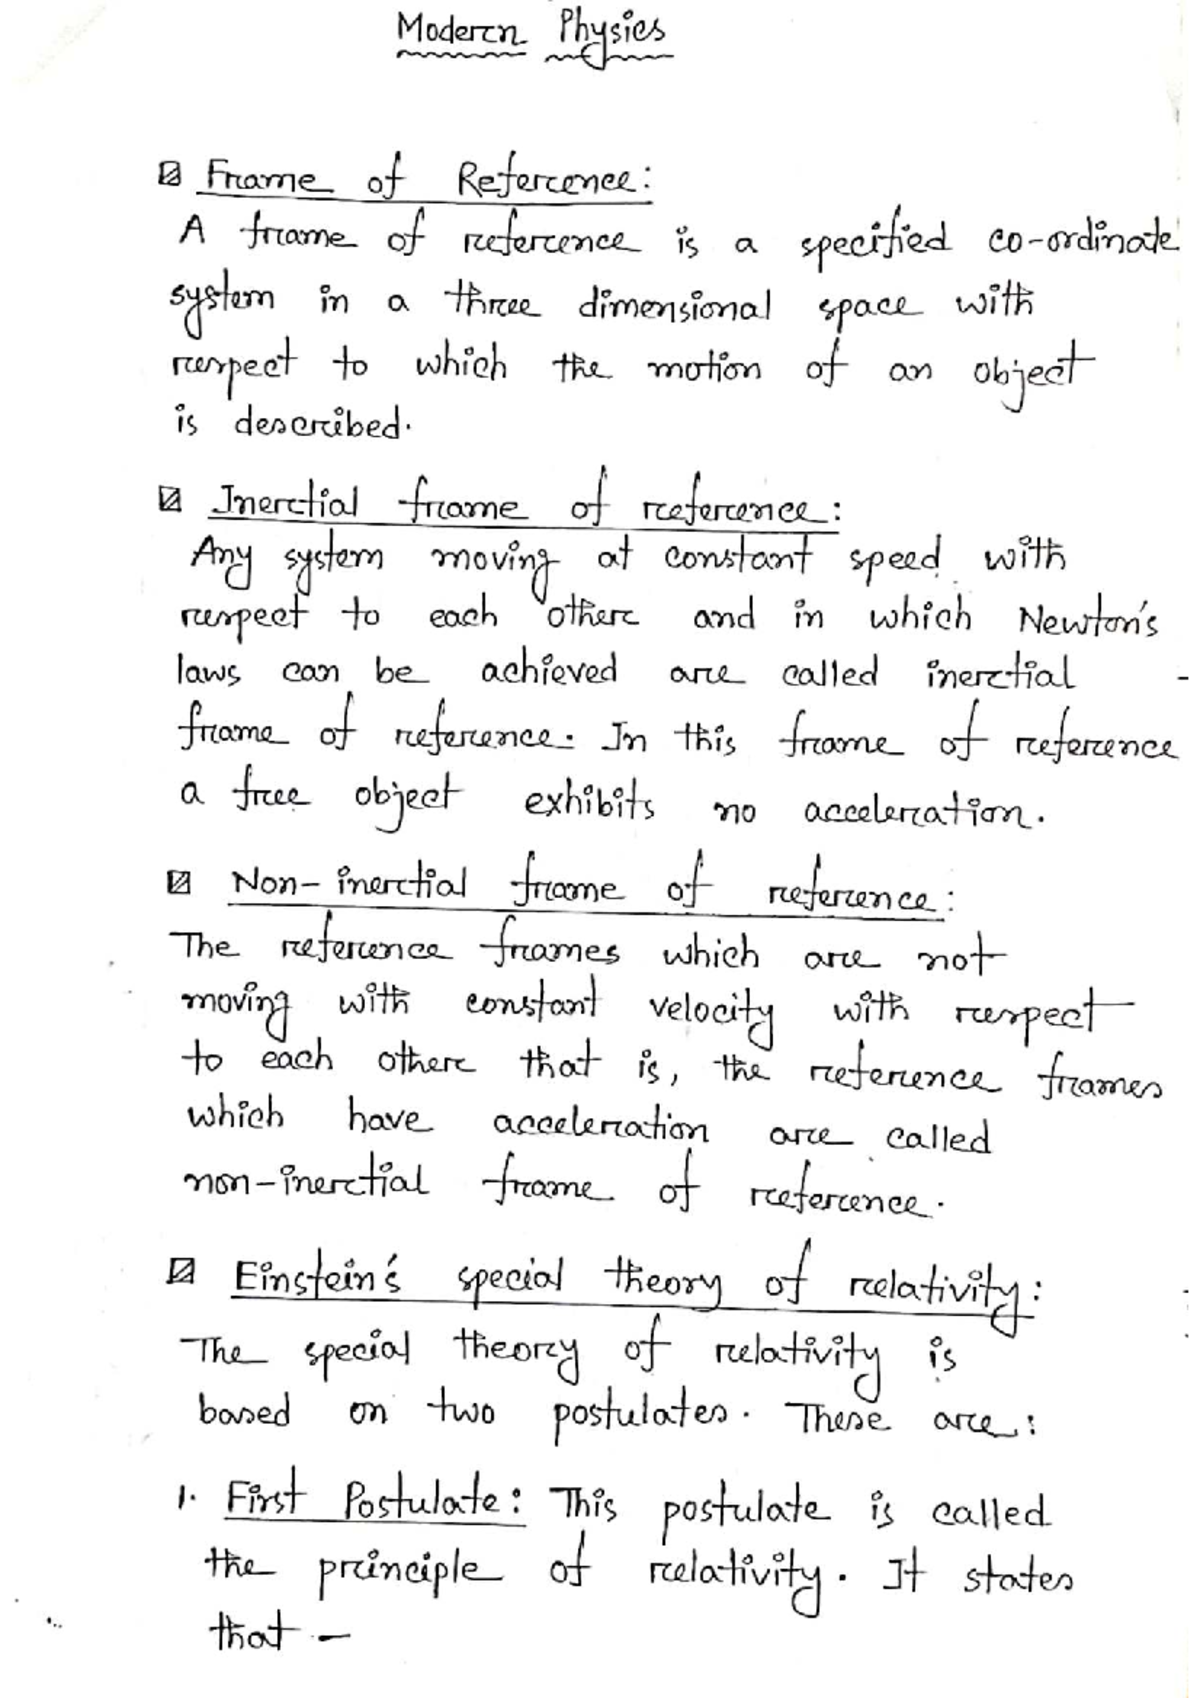 Modern Physics
Frame of Reference:
A frame of reference is a specified co-ordinate
system in a three dimensional space with
respect to which the motion of an object
is described.
Inertial frame of reference:
Any system moving at constant speed with
respect to each other and in which Newton's
laws can be achieved are called inertial
frame of reference. In this frame of reference
a free object exhibits no acceleration.
Non-inertial frame of reference:
The reference frames which are not
moving with constant velocity with respect
to each other that is, the reference frames
which have acceleration are called
non-inertial frame of reference.
Einstein's special theory of relativity:
The special theory of relativity is
based on two postulates. These are:
1. First Postulate: This postulate is called
the principle of relativity. It states
that -